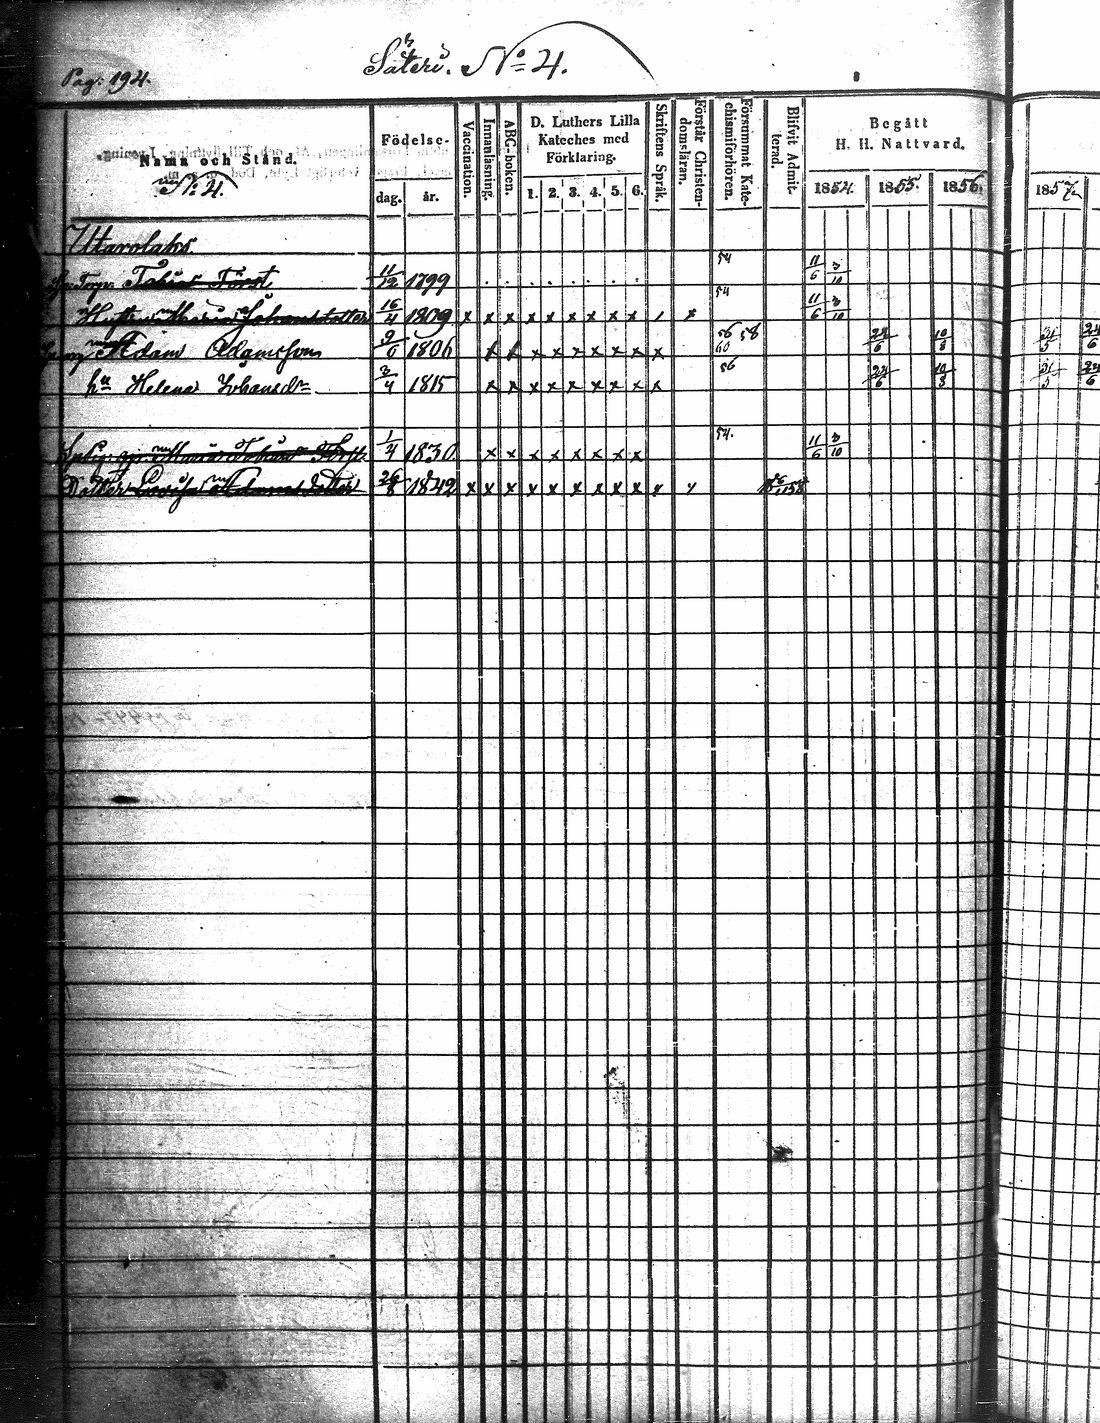 Pag: 194.
Säteri. No 4.
Namn och Stånd.
No 4.
Födelse-
dag. år.
Vaccination.
Innanläsning.
ABC-boken.
D. Luthers Lilla
Kateches med
Förklaring.
1. 2. 3. 4. 5. 6.
Skriftens Språk.
Förstår Christen-
domsläran.
Försummat Kate-
chismiförhören.
Blifvit Admit-
terad.
Begått
H. H. Nattvard.
1854. 1855. 1856. 1857.
Torp. 11/12 1799 . . . . . . 54 11/6 3/10
Hust. Maria Johansdotter 16/4 1809 x x x x x x x x x x 54 11/6 3/10
Adam Adamsson 9/6 1806 x x x x x x x x x 56 58 60 24/6 10/8 31/5 24/6
hu Helena Johansdr 3/4 1815 x x x x x x x x x 56 24/6 10/8 31/5 24/6
Maria 1/4 1830 x x x x x x x x 54. 11/6 3/10
Dotter Lovisa 26/8 1842 x x x x x x x x x x x